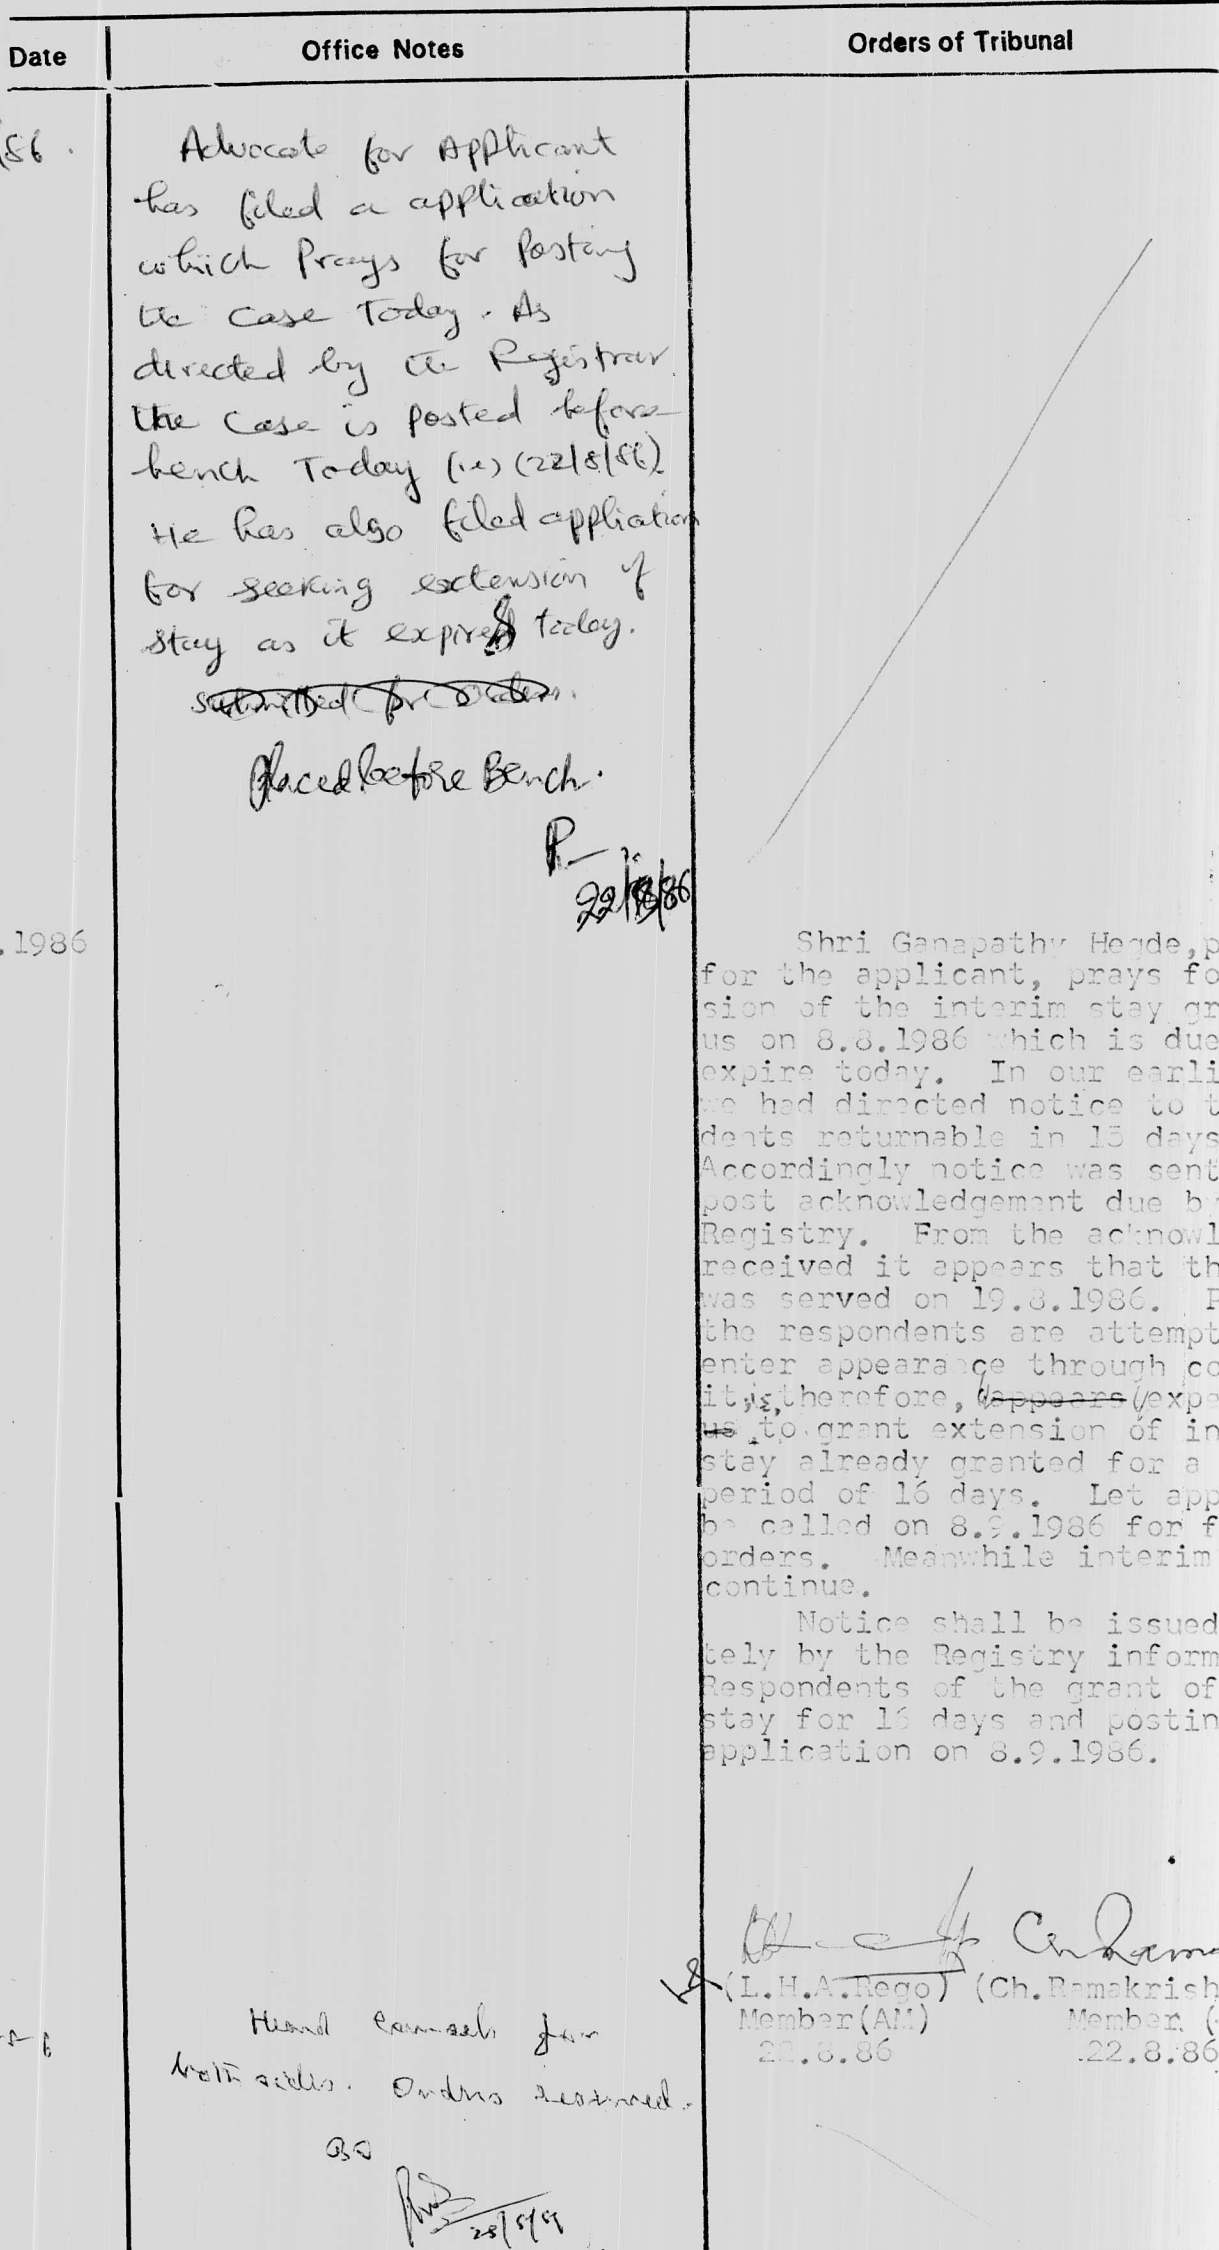 Date
Office Notes
Orders of Tribunal
86.
Advocate for Applicant
has filed a application
which Prays for Posting
the Case Today. As
directed by the Registrar
the Case is posted before
bench Today (i.e) (22/8/86)
He has also filed application
for seeking extension of
stay as it expires today.
submitted for orders.
Placed before Bench.
22/8/86
.1986
Shri Ganapathy Hegde,p
for the applicant, prays fo
sion of the interim stay gr
us on 8.8.1986 which is due
expire today. In our earli
we had directed notice to t
dents returnable in 15 days
Accordingly notice was sent
post acknowledgement due by
Registry. From the acknowl
received it appears that th
was served on 19.8.1986. P
the respondents are attempt
enter appearance through co
it, is, therefore, appears expe
us to grant extension of in
stay already granted for a
period of 16 days. Let app
be called on 8.9.1986 for f
orders. Meanwhile interim
continue.
Notice shall be issued
tely by the Registry inform
Respondents of the grant of
stay for 16 days and postin
application on 8.9.1986.
(L.H.A.Rego) (Ch.Ramakrish
Member(AM) Member (
22.8.86 22.8.86
Heard Counsels for
both sides. Orders reserved.